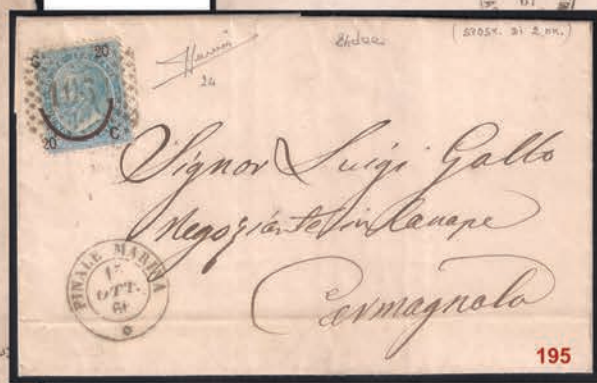 (SPOST. DI 2 MM.)
20
C
20
C
24
Signor Luigi Gallo
Negoziante in Canape
Carmagnola
FINALE MARINA
OTT.
195